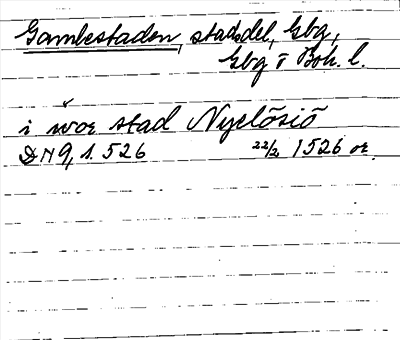 Gamlestaden, stadsdel, Gbg,
Gbg o Boh. l.
i wor stad Nyelösiö
DN 9, 1. 526 22/2 1526 or.